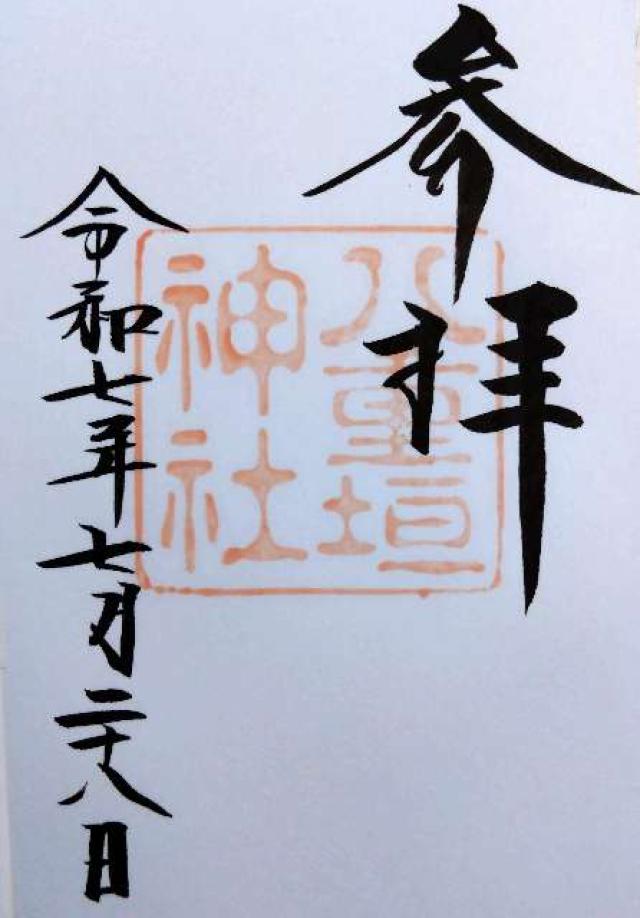 参拝
八重垣
神社
令和七年七月二十八日